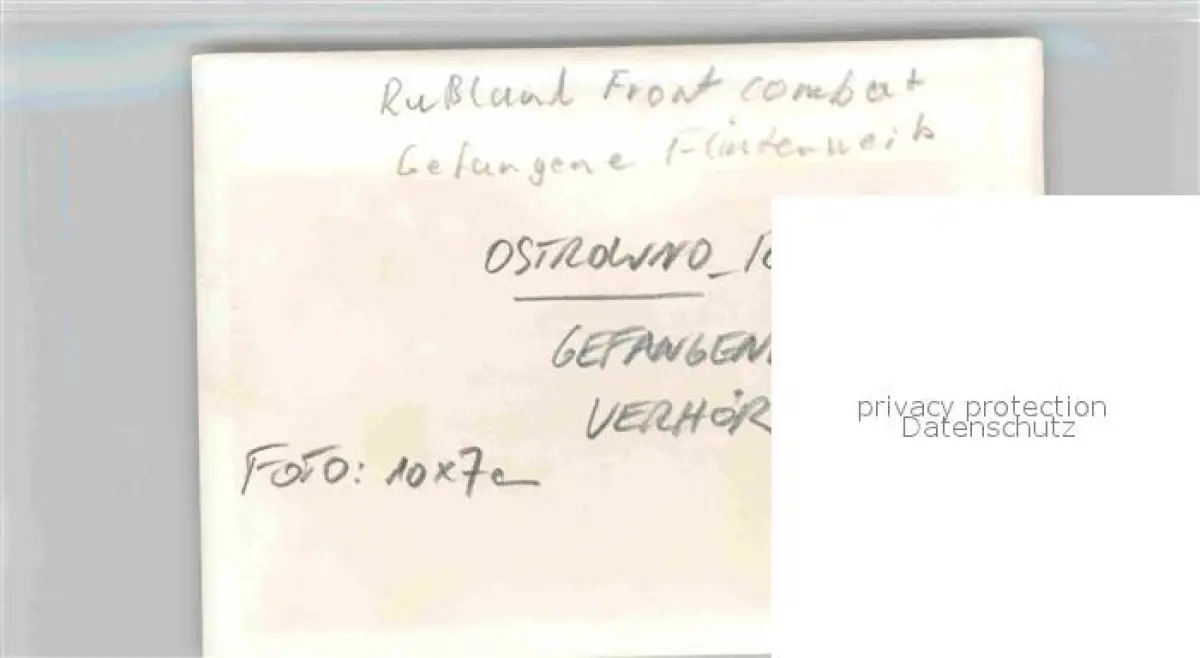 Rußland Front combat
Gefangene Flintenweib
OSTROWNO_
GEFANGEN
VERHÖR
FOTO: 10x7c
privacy protection
Datenschutz